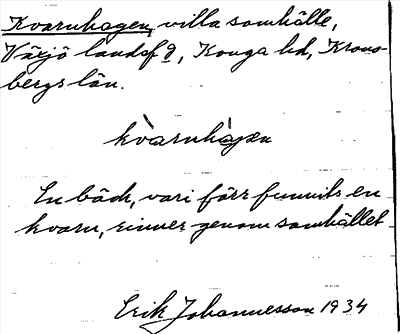 Kvarnhagen, villasamhälle,
Växjö landsf d, Konga hd, Krono-
bergs län.
kvàrnhàgen
En bäck, vari förr funnits en
kvarn, rinner genom samhället
Erik Johannesson 1934